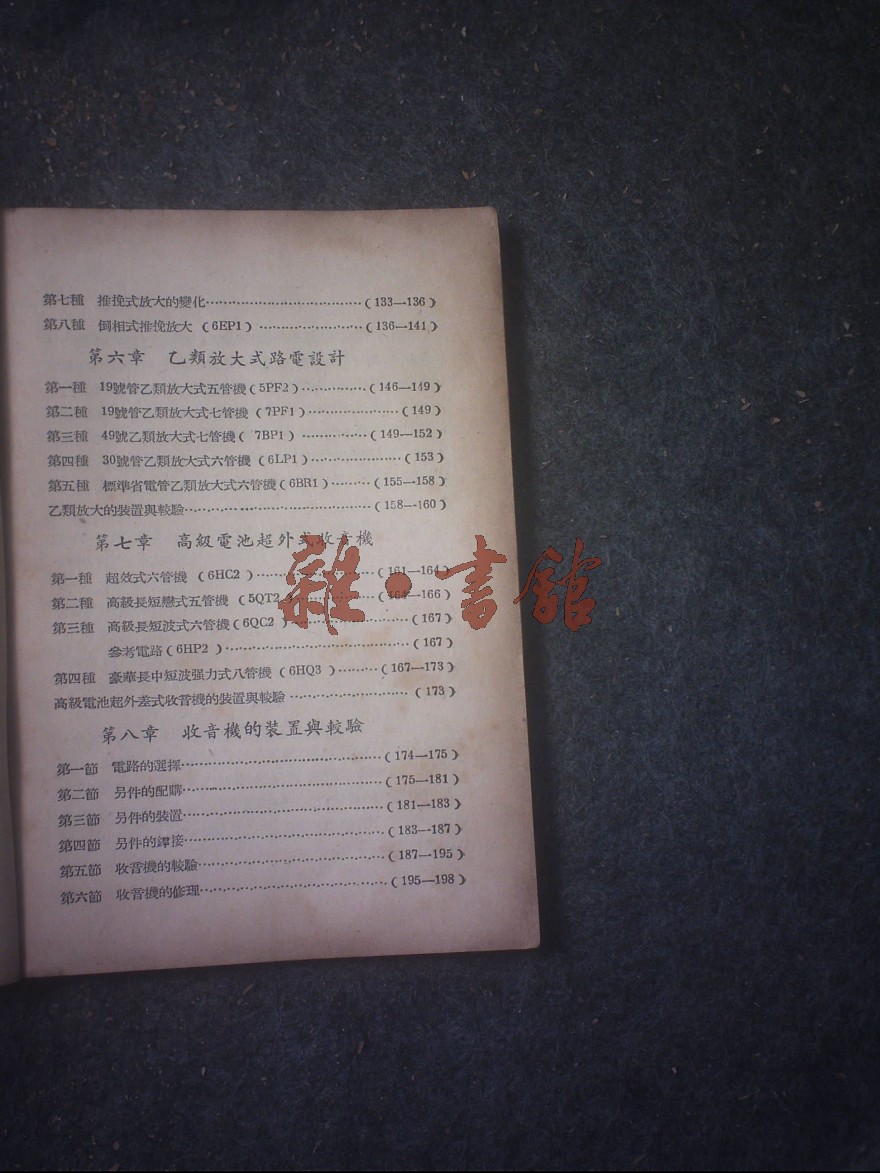 第七種 推挽式放大的變化……………………………(133—136)
第八種 倒相式推挽放大 (6EP1)………………………(136—141)
第六章 乙類放大式路電設計
第一種 19號管乙類放大式五管機(5PF2)……………(146—149)
第二種 19號管乙類放大式七管機 (7PF1)…………………(149)
第三種 49號乙類放大式七管機( 7BP1)……………(149—152)
第四種 30號管乙類放大式六管機(6LP1)…………………(153)
第五種 標準省電管乙類放大式六管機(6BR1)………(155—158)
乙類放大的裝置與較驗…………………………………(158—160)
第七章 高級電池超外式收音機
第一種 超效式六管機 (6HC2)………………………(161—164)
第二種 高級長短戀式五管機 (5QT2)………………(164—166)
第三種 高級長短波式六管機(6QC2)………………………(167)
參考電路(6HP2)……………………………………(167)
第四種 豪華長中短波强力式八管機 (6HQ3)………(167—173)
高級電池超外差式收音機的裝置與較驗……………………(173)
第八章 收音機的裝置與較驗
第一節 電路的選擇……………………………………(174—175)
第二節 另件的配購……………………………………(175—181)
第三節 另件的裝置……………………………………(181—183)
第四節 另件的銲接……………………………………(183—187)
第五節 收音機的較驗…………………………………(187—195)
第六節 收音機的修理…………………………………(195—198)
雜·書館